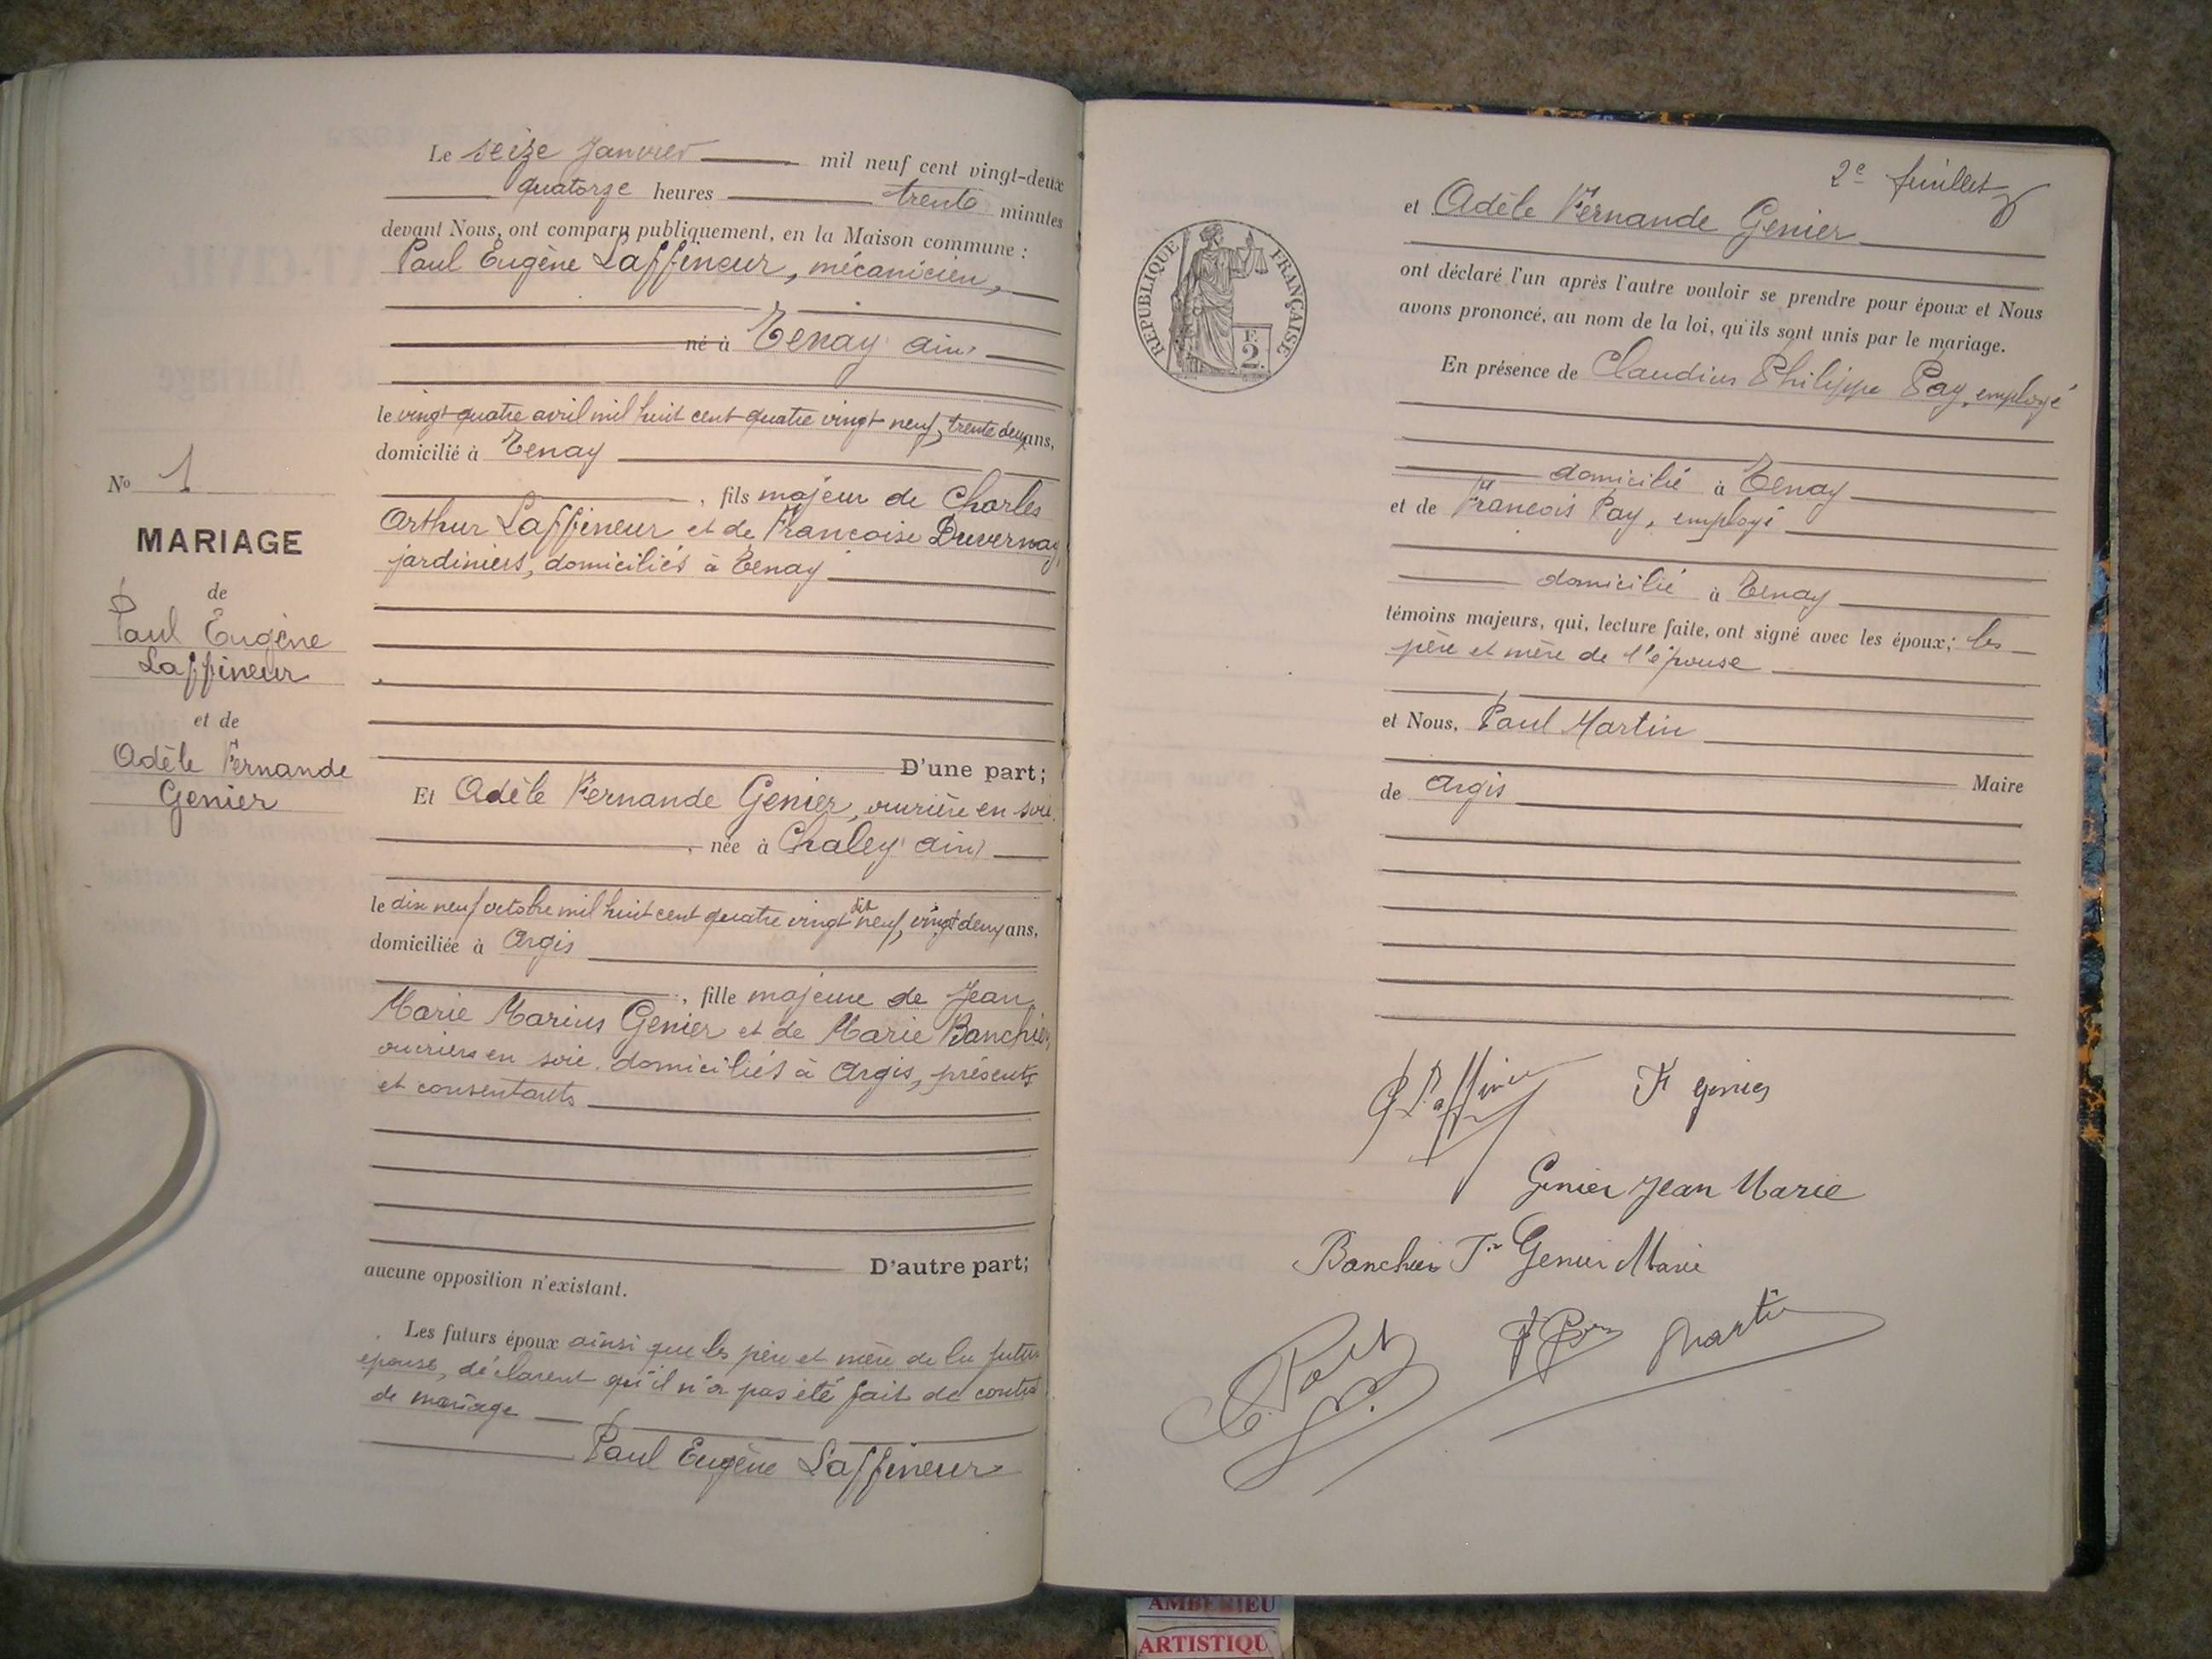 Le seize Janvier mil neuf cent vingt-deux
quatorze heures trente minutes
devant Nous, ont comparu publiquement, en la Maison commune :
Paul Eugène Laffineur, mécanicien,
né à Tenay Ain
le vingt quatre avril mil huit cent quatre vingt neuf, trente deux ans,
domicilié à Tenay
, fils majeur de Charles
Arthur Laffineur et de Francoise Duvernay,
jardiniers, domiciliés à Tenay
D'une part;
Et Adèle Fernande Genier, ouvrière en soie
née à Chaley Ain
le dix neuf octobre mil huit cent quatre vingt dix neuf, vingt deux ans,
domiciliée à Argis
, fille majeure de Jean
Marie Marius Genier et de Marie Banchier,
ouvriers en soie, domiciliés à Argis, présents
et consentants
D'autre part;
aucune opposition n'existant.
Les futurs époux ainsi que les père et mère de la future
épouse, déclarent qu'il n'a pas été fait de contrat
de mariage
Paul Eugène Laffineur
No 1
MARIAGE
de
Paul Eugène
Laffineur
et de
Adèle Fernande
Genier
2e feuillet
RÉPUBLIQUE FRANÇAISE
F.
2.
et Adèle Fernande Genier
ont déclaré l'un après l'autre vouloir se prendre pour époux et Nous
avons prononcé, au nom de la loi, qu'ils sont unis par le mariage.
En présence de Claudius Philippe Pay, employé
domicilié à Tenay
et de Francois Pay, employé
domicilié à Tenay
témoins majeurs, qui, lecture faite, ont signé avec les époux; les
père et mère de l'épouse
et Nous, Paul Martin
Maire
de Argis
Laffineur
F genier
Genier Jean Marie
Banchier Genier Marie
Martin
AMBERIEU
ARTISTIQU